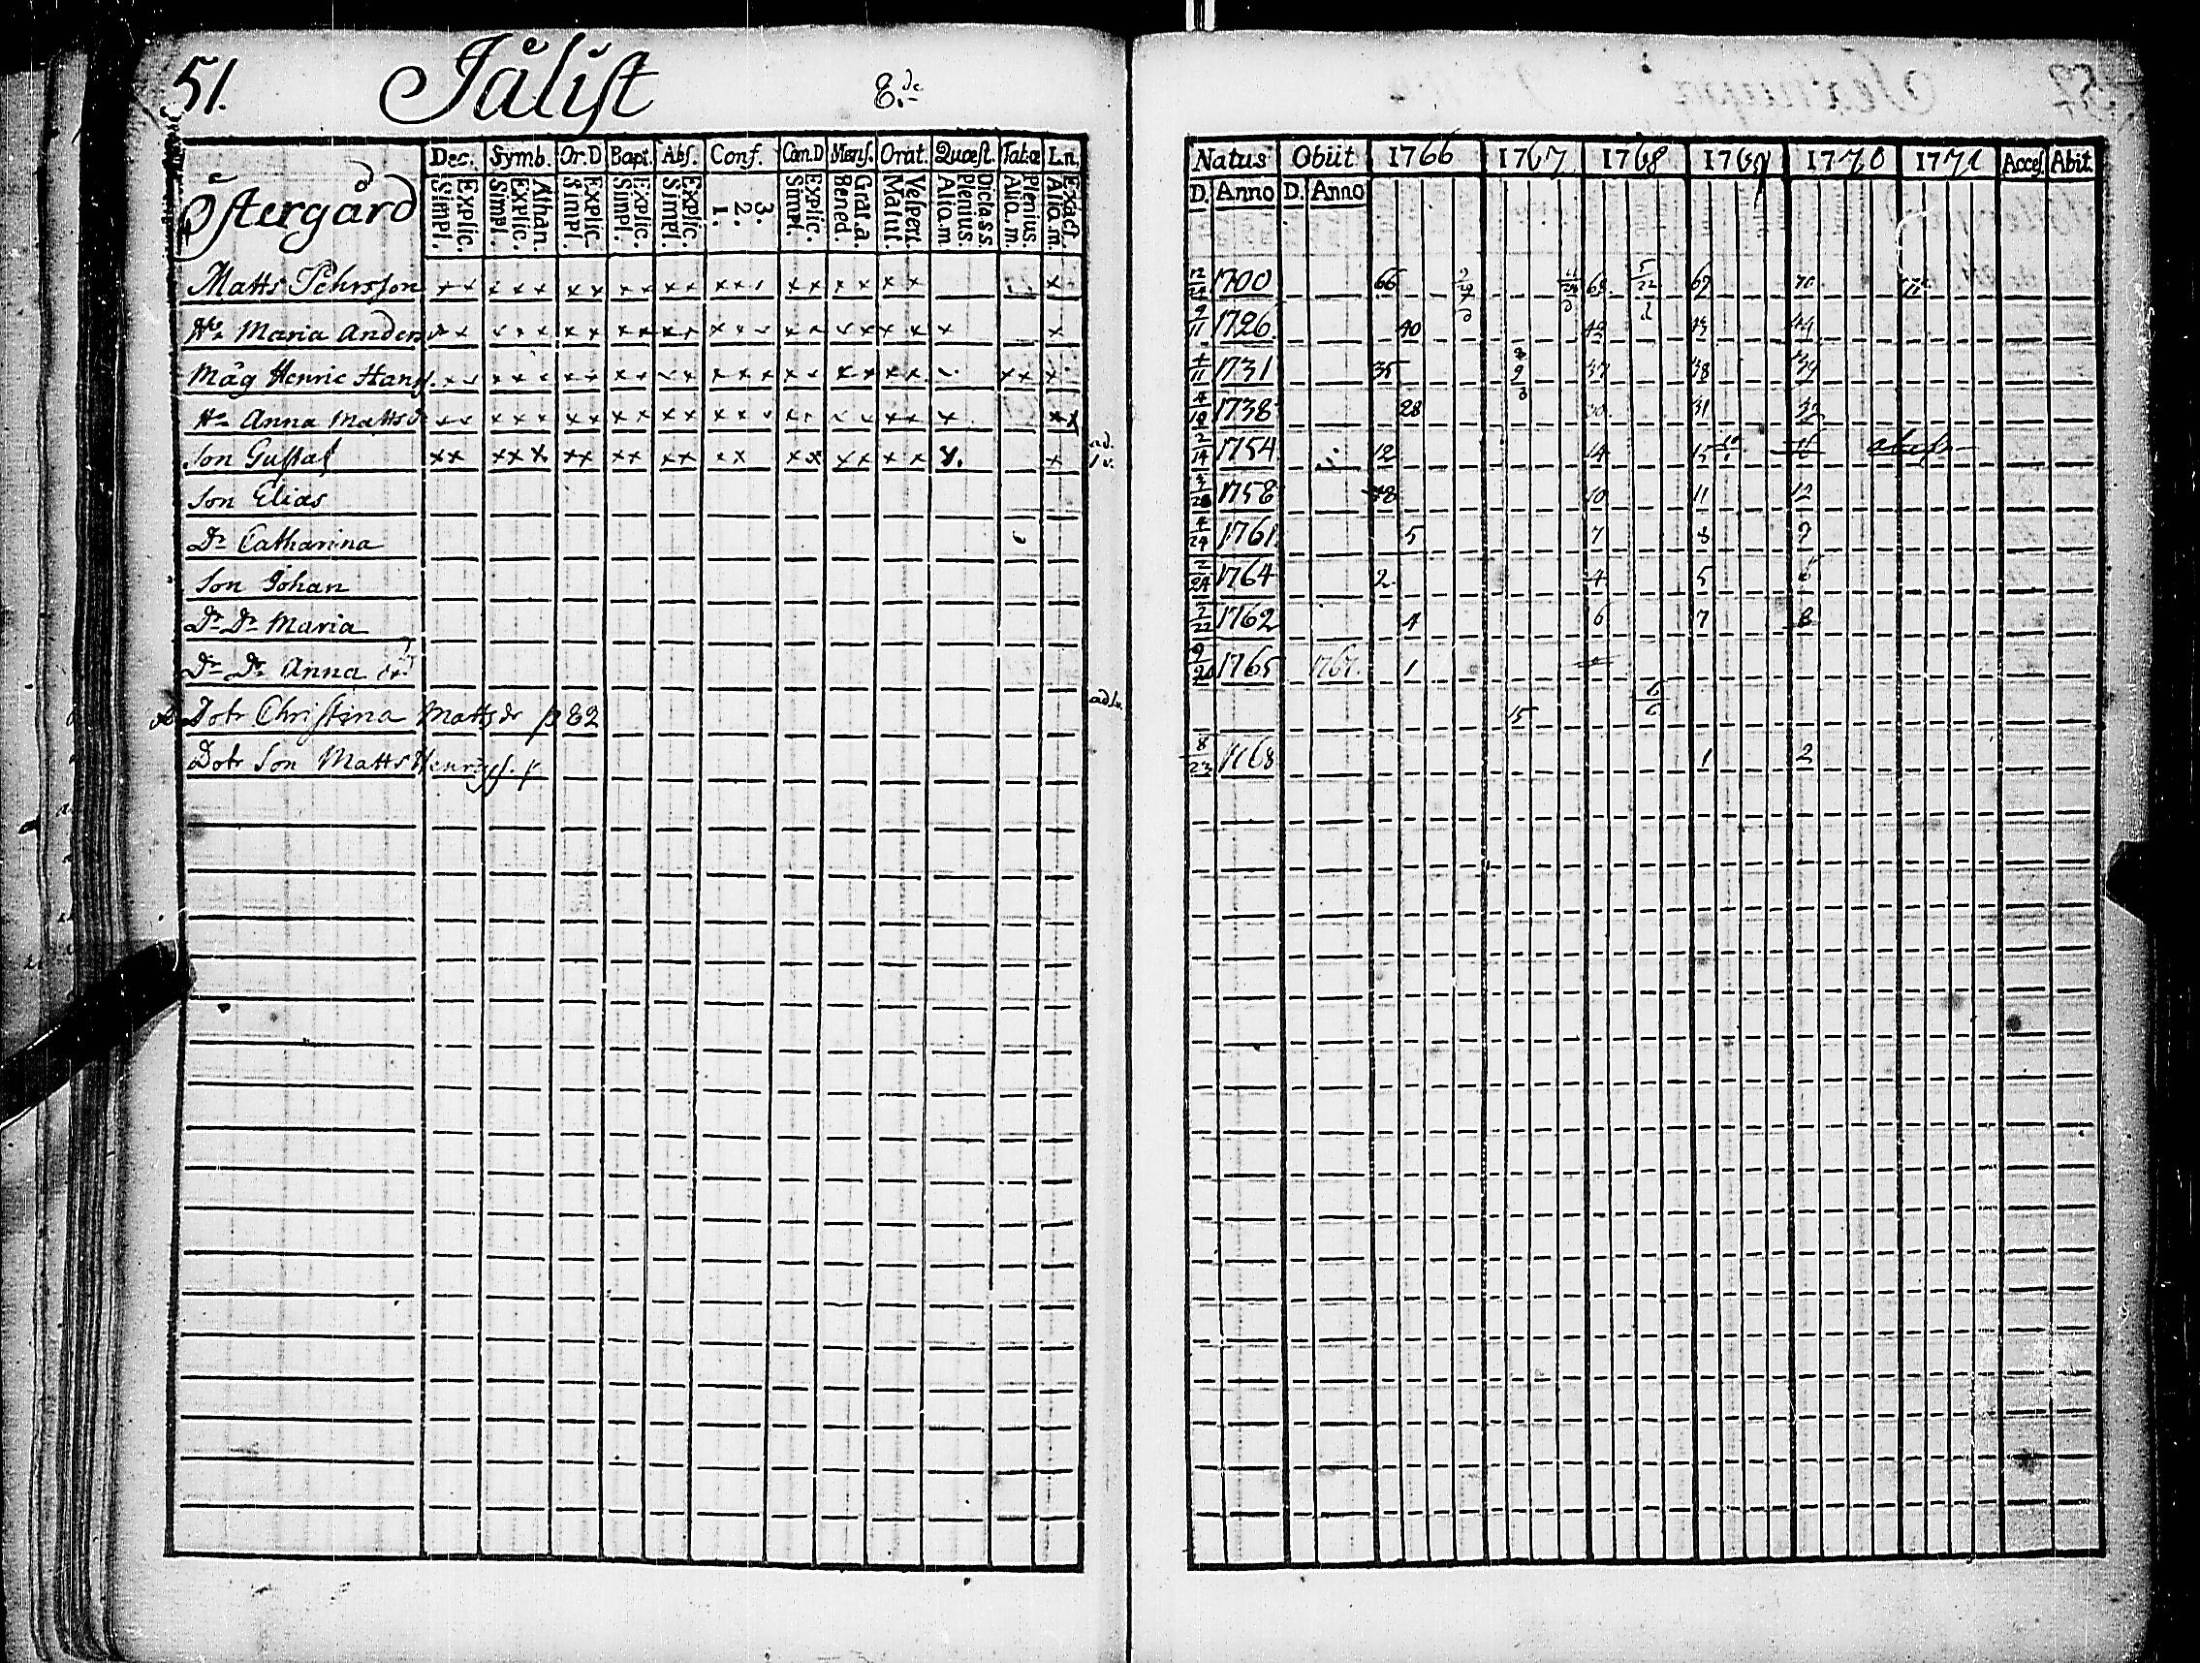 51. Jålist 8.de
Östergård
Dec. Symb. Or.D Bapt. Abs. Conf. Can.D Mens. Orat. Quæst. Tabæ Ln.
Simpl. Explic. Simpl. Explic. Athan. Simpl. Explic. Simpl. Explic. Simpl. Explic. 1. 2. 3. Simpl. Explic. Bened. Grat.a. Matut. Vespert. Alia.m. Plenius. Dicta.s.s. Alia.m. Plenius. Alia.m. Exact.
Natus Obiit 1766 1767 1768 1769 1770 1771 Acces. Abit.
D. Anno D. Anno
Matts Pehrsson 12/24 1700 66 68 69 70
Hu Maria Anders 9/11 1726 40 42 43 44
Måg Henric Hans 1/11 1731 35 37 38 39
Hu Anna Mattsdr 1738 28 30 31 32
Son Gustaf ad. 2/14 1754 12 14 15 16
Son Elias 3/28 1758 8 10 11 12
Dr Catharina 4/24 1761 5 7 8 9
Son Johan 2/24 1764 2 4 5 6
Dr Dr Maria 2/22 1762 4 6 7 8
Dr Dr Anna 9/20 1765 1767. 1
Dotr Christina Mattsdr p 82 15 6/6
Dotr Son Matts Henrics. 8/23 1768 1 2